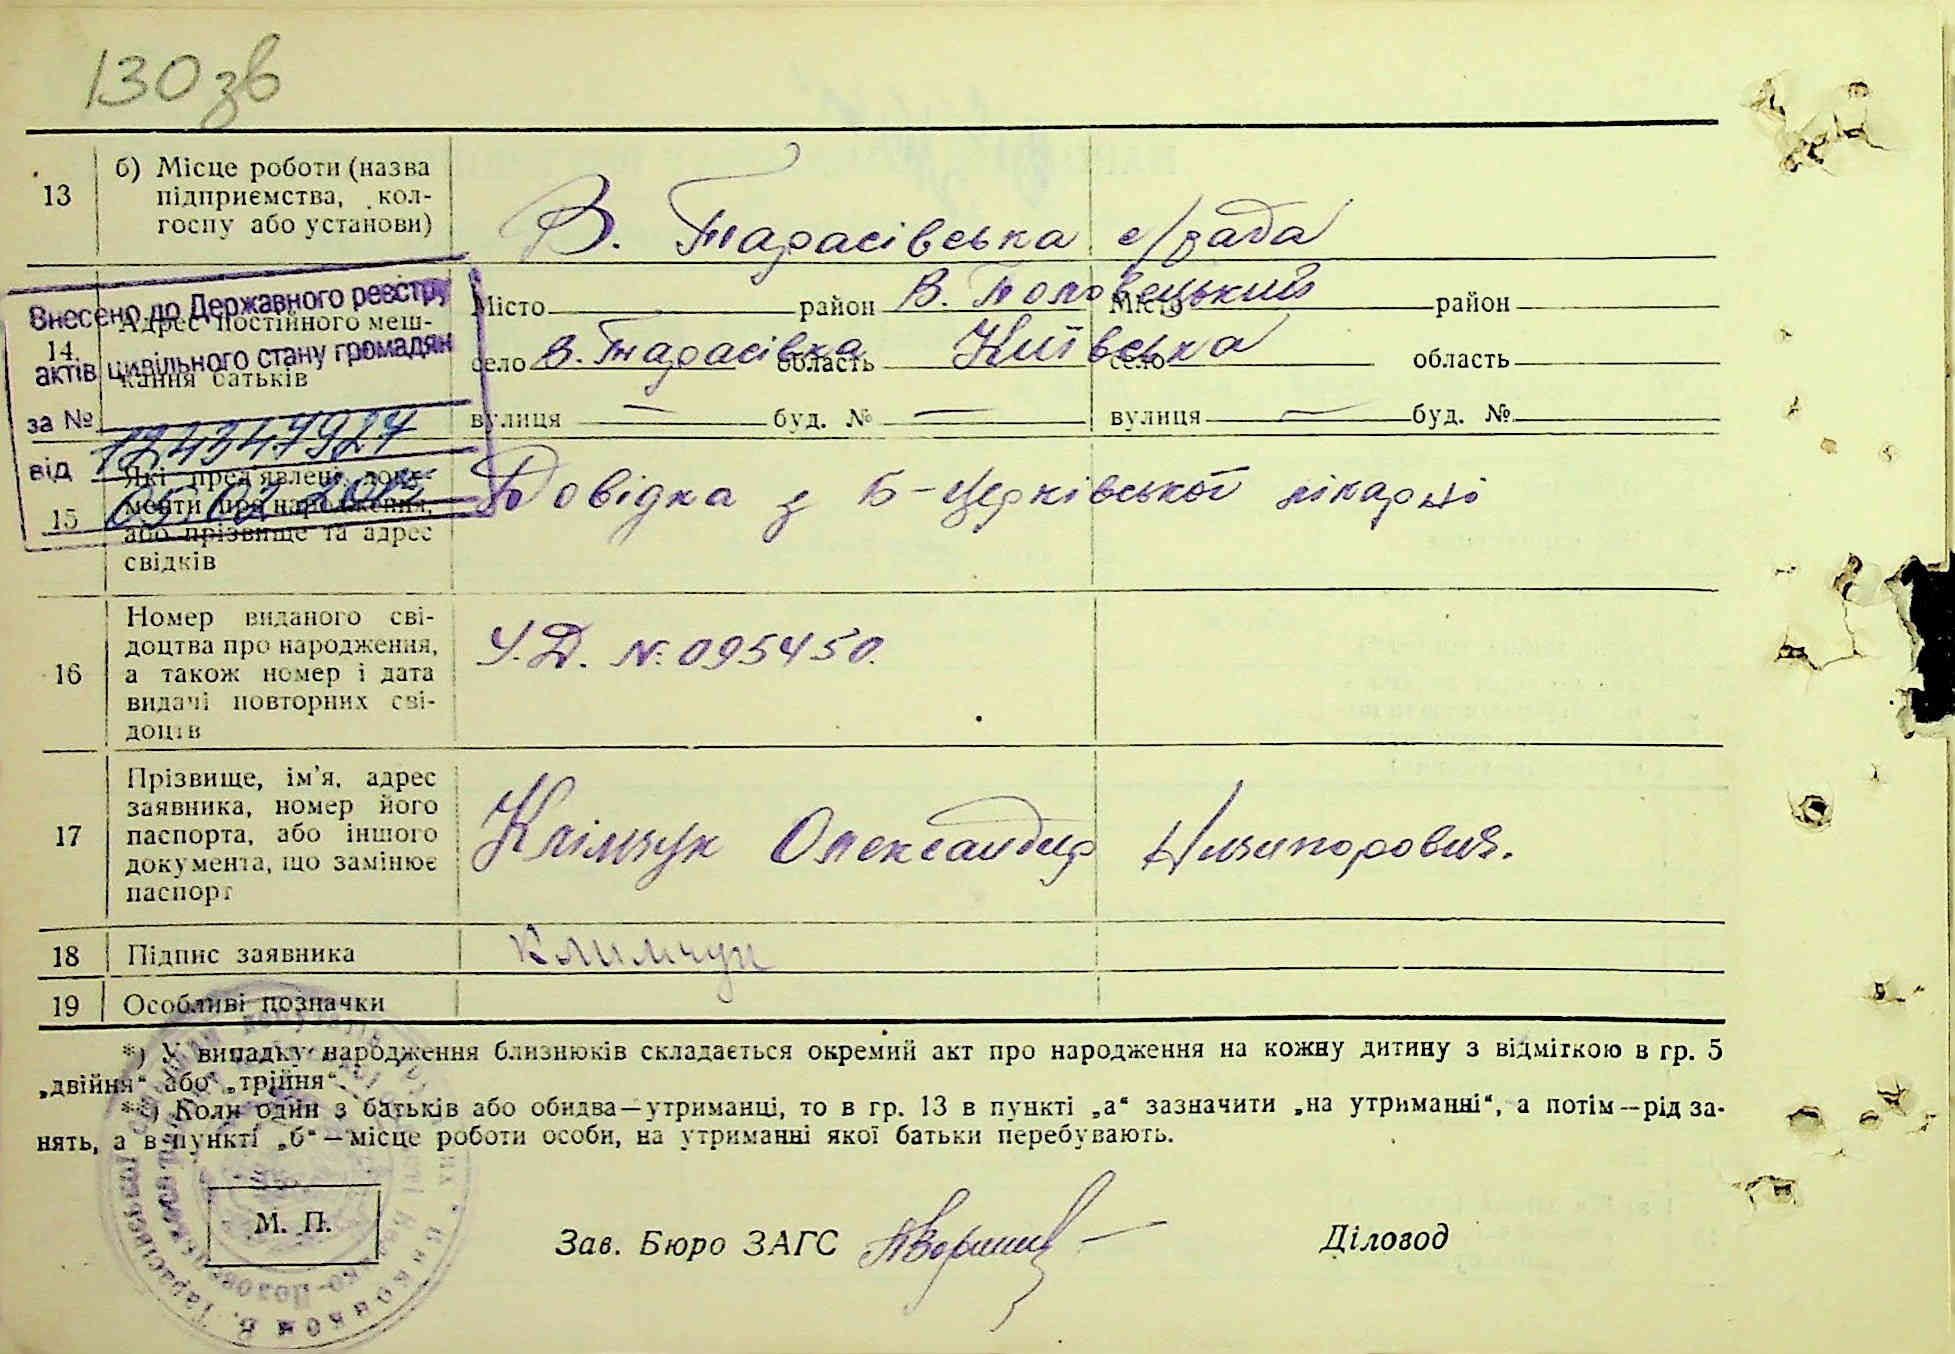 130 зв
13
б) Місце роботи (назва
підприємства, кол-
госпу або установи)
В. Тарасівська с/рада
Внесено до Державного реєстру
актів цивільного стану громадян
за № 124347927
від 05.02.
14
Адрес постійного меш-
кання батьків
Місто район В. Половецький
село В. Тарасівка область Київська
вулиця — буд. № —
Місто район
село область
вулиця — буд. №
15
Які пред'явлені доку-
менти про народження,
або прізвище та адрес
свідків
Довідка з Б-Церківської лікарні
16
Номер виданого сві-
доцтва про народження,
а також номер і дата
видачі повторних сві-
доцтв
У.Д. № 095450.
17
Прізвище, ім'я, адрес
заявника, номер його
паспорта, або іншого
документа, що замінює
паспорт
Клімчук Олександир Ничипорович.
18
Підпис заявника
Климчук
19
Особливі позначки
*) У випадку народження близнюків складається окремий акт про народження на кожну дитину з відміткою в гр. 5
„двійня“ або „трійня“.
**) Коли один з батьків або обидва—утриманці, то в гр. 13 в пункті „а“ зазначити „на утриманні“, а потім—рід за-
нять, а в пункті „б“—місце роботи особи, на утриманні якої батьки перебувають.
М. П.
Зав. Бюро ЗАГС
Діловод